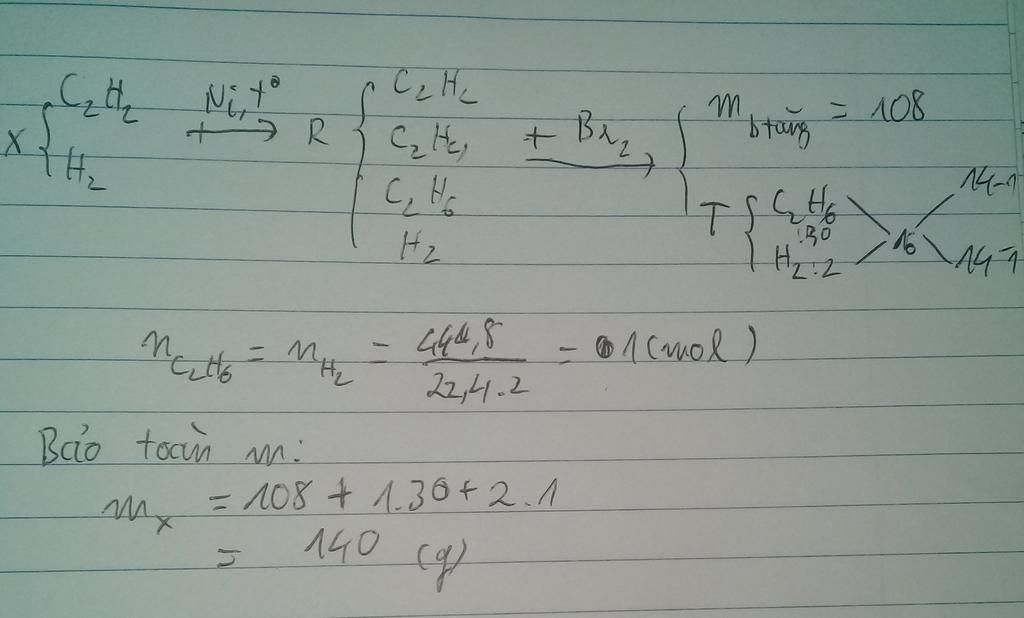 X { C2H2 H2 Ni, t° → R { C2H2 C2H4 C2H6 H2 + Br2 → { m b tăng = 108
T { C2H6 :30 H2 :2 16 14-1 14-1
nC2H6 = nH2 = 44,8 / 22,4.2 = 1 (mol)
Bảo toàn m:
mx = 108 + 1.30 + 2.1
= 140 (g)